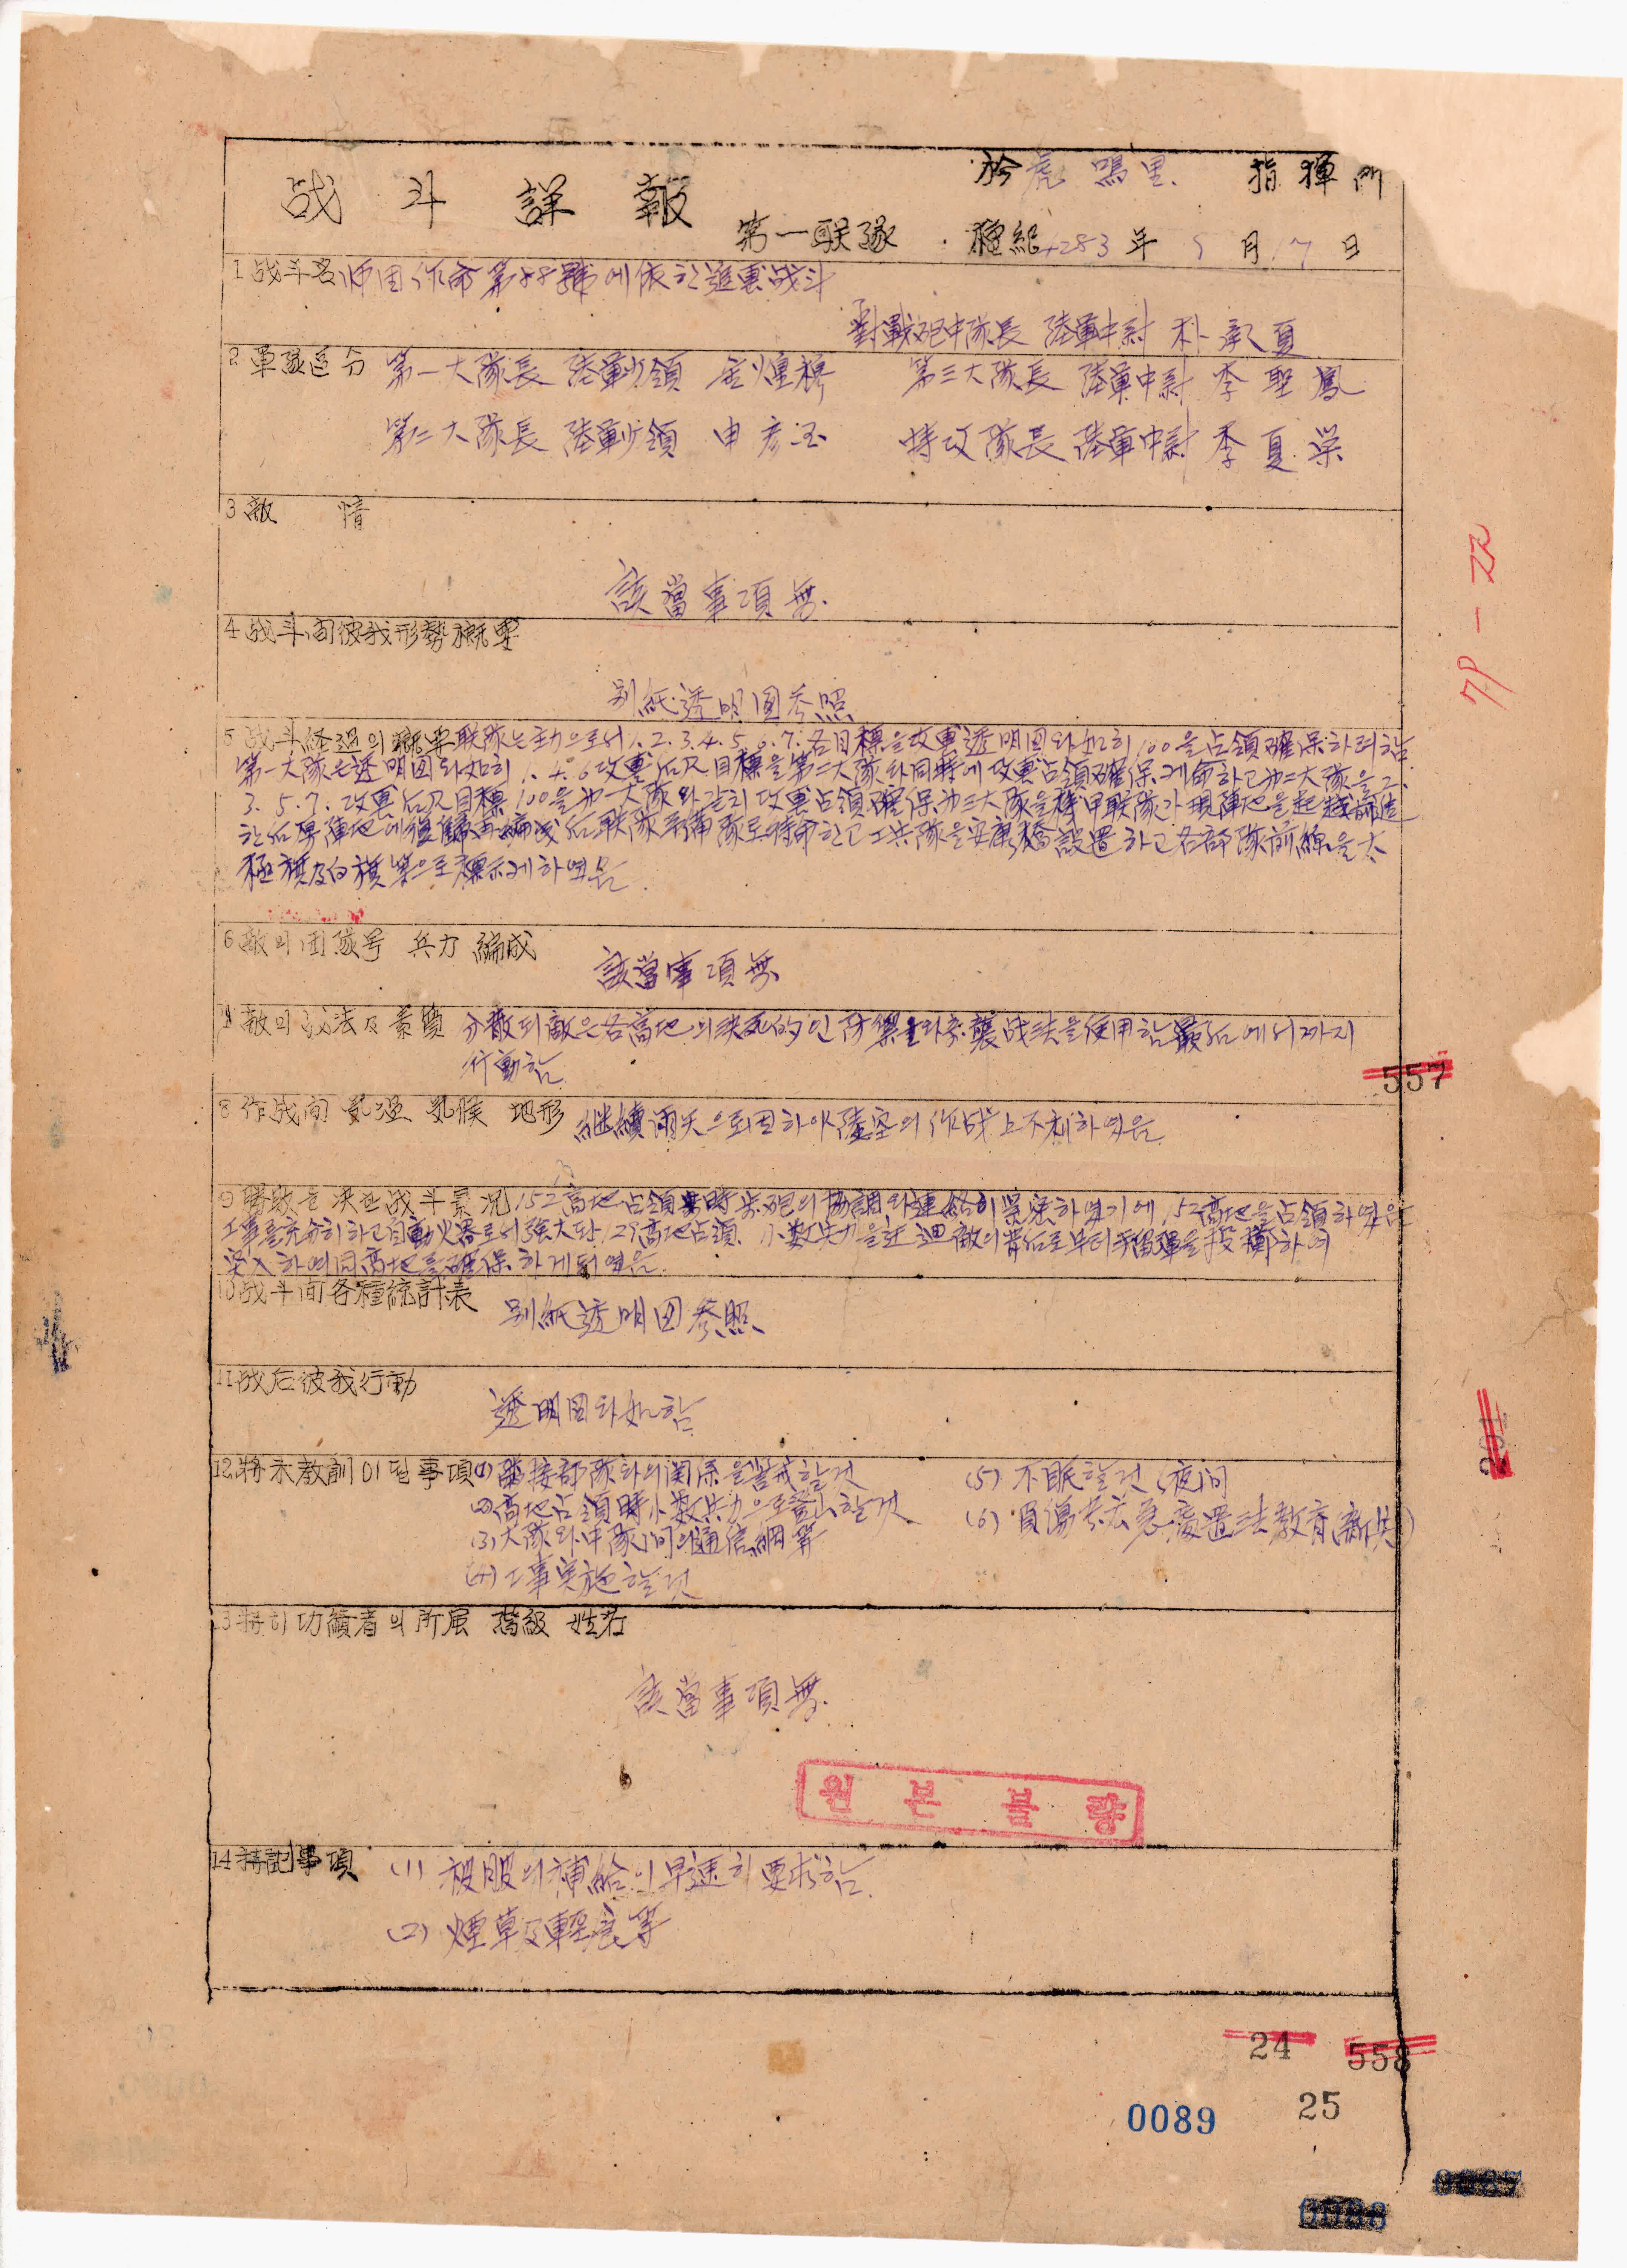 战斗詳報
於虎鳴里 指揮所
第一联隊 檀紀4283年 9月17日
1 战斗名 师团作命第88號에依한追擊战斗
對戰砲中隊長 陸軍中尉 朴承夏
2 軍隊區分 第一大隊長 陸軍少領 金煌穆 第三大隊長 陸軍中尉 李聖鳳
第二大隊長 陸軍少領 申彦玉 特攻隊長 陸軍中尉 李夏栄
3 敵 情
該當事項無
4 战斗间彼我形勢概要
別紙透明図参照
5 战斗経過의概要 联隊는主力으로서1.2.3.4.5.6.7.各目標를攻擊透明図와如히100을占領確保하려함
第一大隊는透明図와如히1.4.6攻擊后又目標을第二大隊와同時에攻擊占領確保케命하고第二大隊을2.
3.5.7.攻擊后又目標100을第一大隊와갈치攻擊占領確保第三大隊을機甲联隊가現陣地을超越前進
한后原陣地에復歸再編成后联隊予備隊로待命한고工兵隊을安康橋設置하고各部隊前線을太
極旗及白旗等으로標示케하였음
6 敵의团隊号 兵力 編成 該當事項無
7 敵의战法及素質 分散되敵은各高地의決死的인防禦와奇襲战法을使用함最后에서까지
行動함
8 作战间 気温 気候 地形 继續雨天으로因하야陸空의作战上不利하였음
9 勝敗를決한战斗景况 152高地占領時步砲의協調와連絡이緊密하였기에152高地을占領하였음
工事를充分히하고自動火器로서强大한129高地占領 小數兵力을迂迴敵의背后로부터手榴彈을投擲하며
突入하여同高地를確保하게되였음
10 战斗间各種統計表 別紙透明図参照
11 战后彼我行動
透明図와如함
12 將来教訓이될事項 (1) 隣接部隊와의関係을警戒할것
(2) 高地占領時小数兵力으로登山할것
(3) 大隊와中隊间의通信網等
(4) 工事実施할것
(5) 不眠할것(夜间
(6) 負傷者応急處置法教育(新兵)
13 特히功績者의所屬 階級 姓名
該當事項無
원본불량
14 特記事項 (1) 被服의補給이早速히要求함
(2) 煙草及輕食等
79-22
557
291
24
558
25
0089
0088
0087